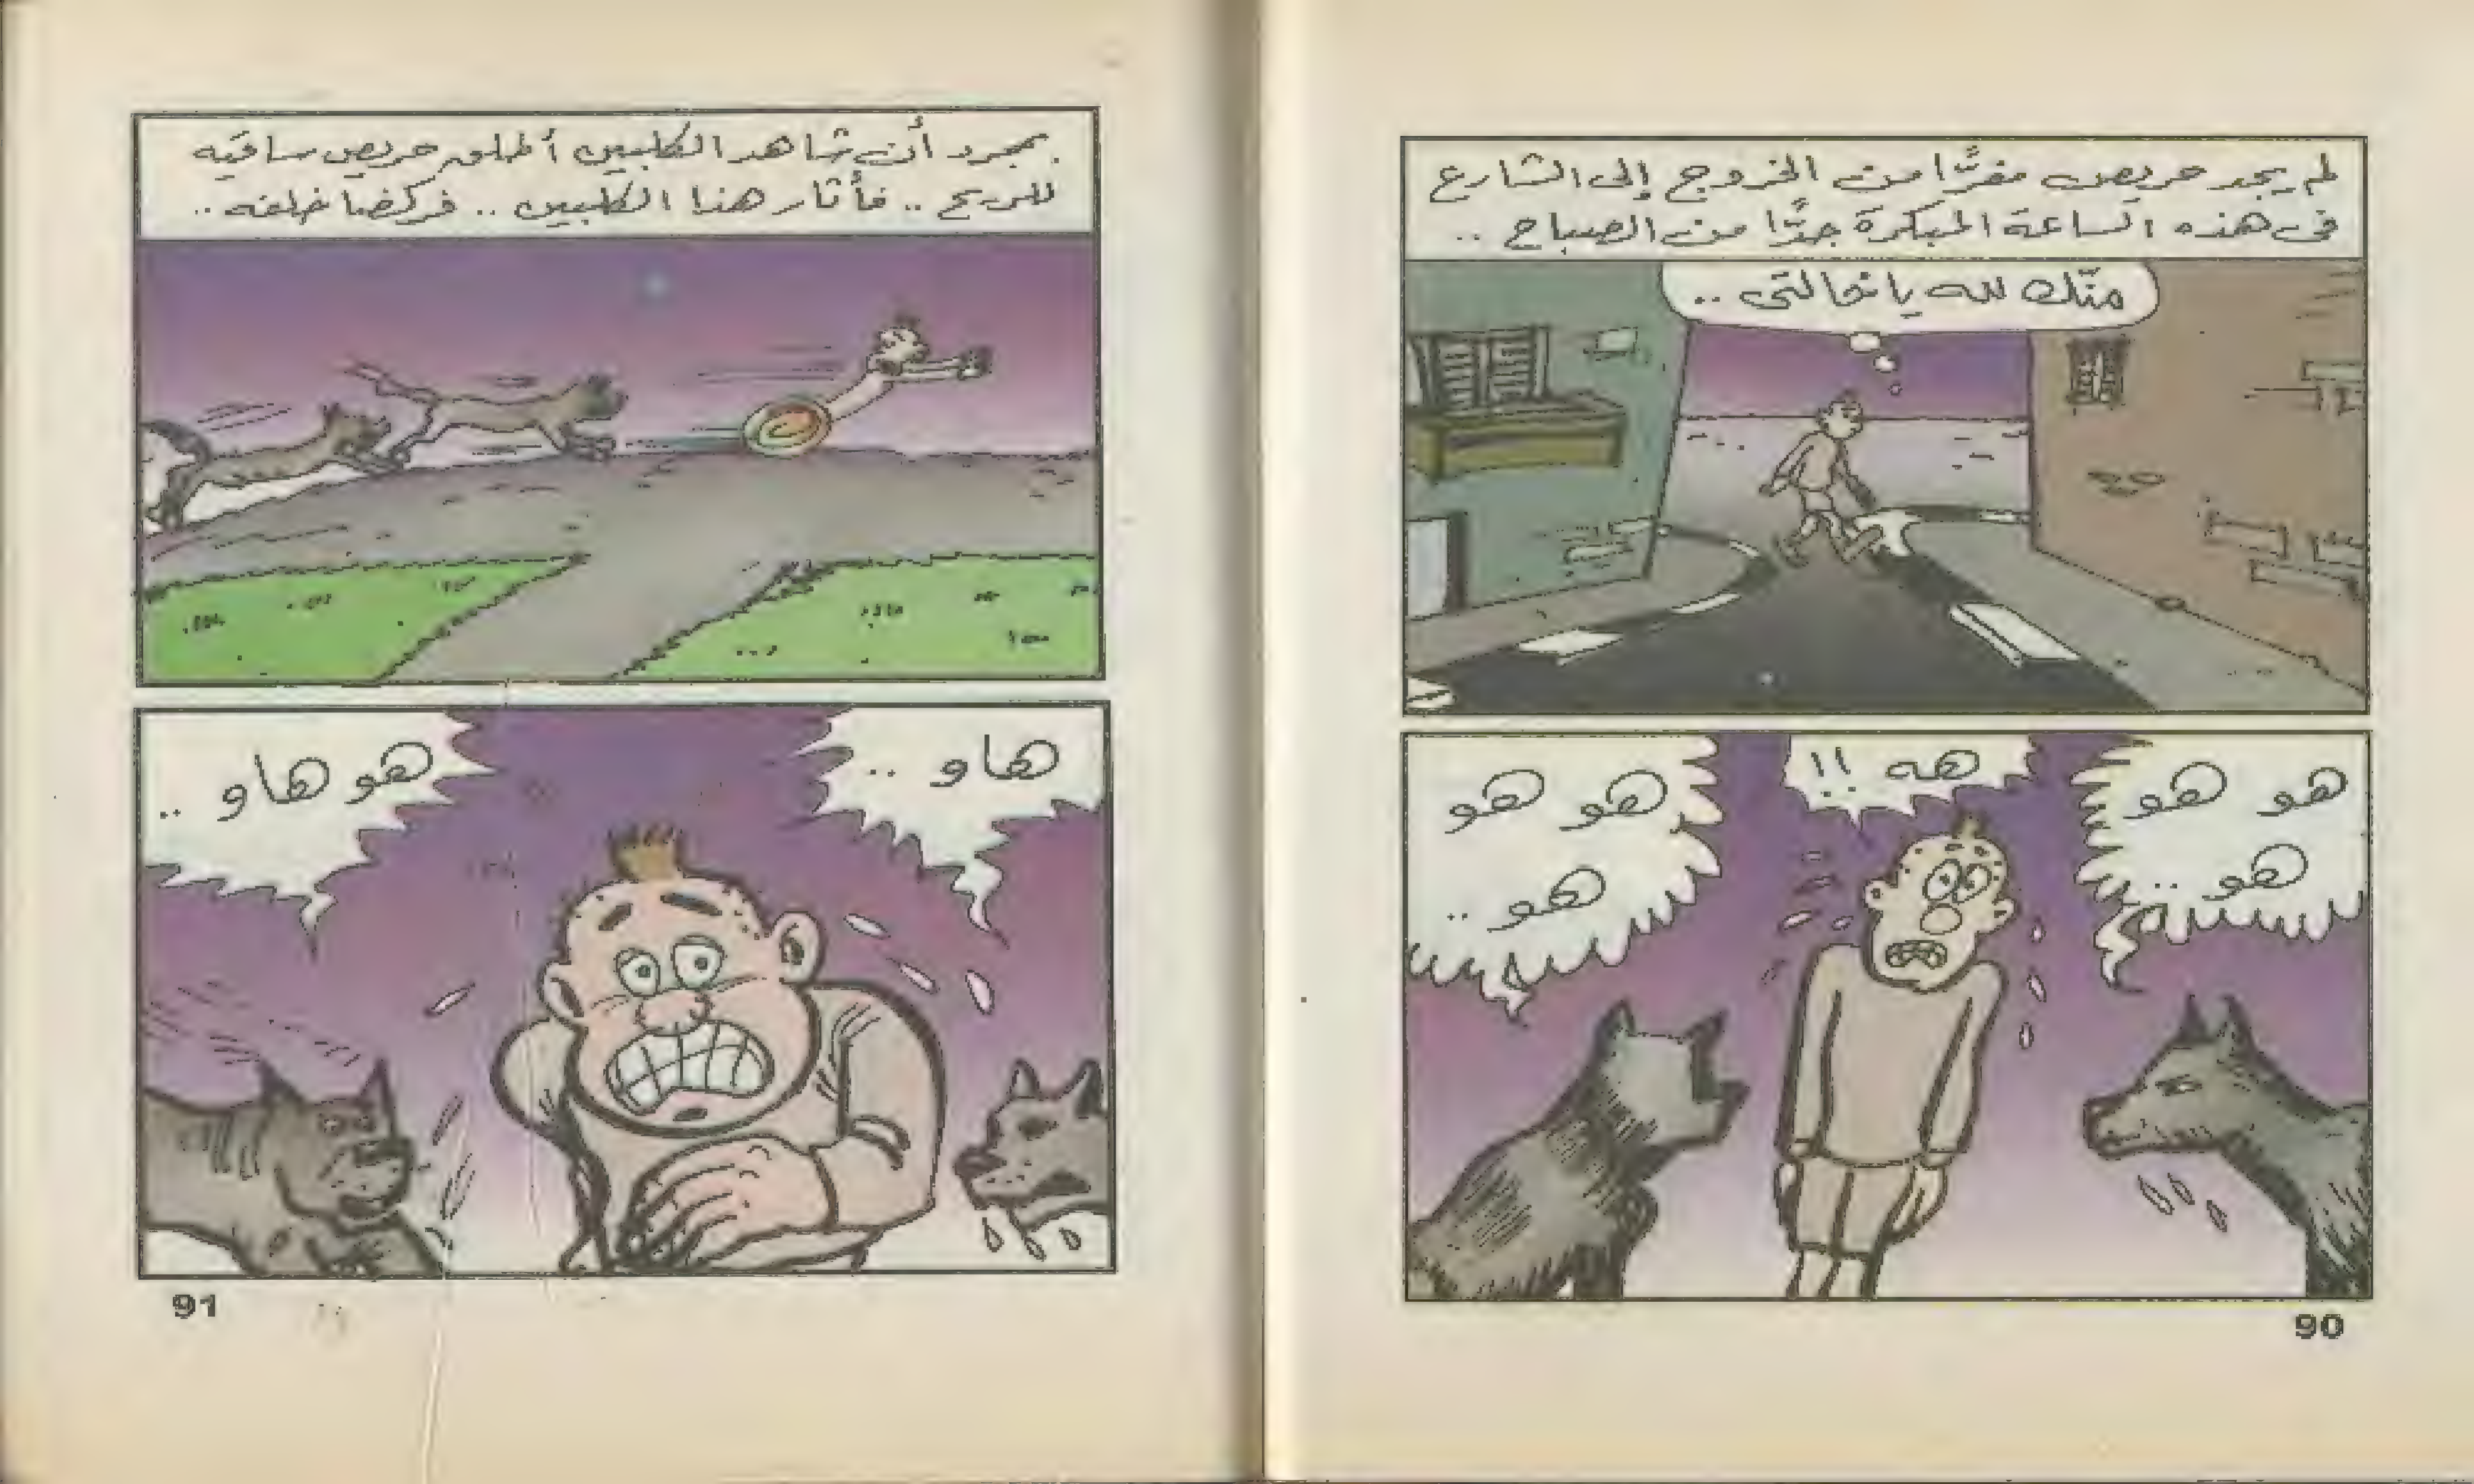 لم يجد حريص مفرًّا من الخروج إلى الشارع
فى هذه الساعة المبكرة جدًّا من الصباح ..
منّك لله يا خالتى ..
هو هو
هو ..
هه !!
هو هو
هو ..
90
بمجرد أن شاهد الكلبين أطلق حريص ساقيه
للريح .. فأثار هذا الكلبين .. فركضا خلفه ..
هاو ..
هو هاو ..
91